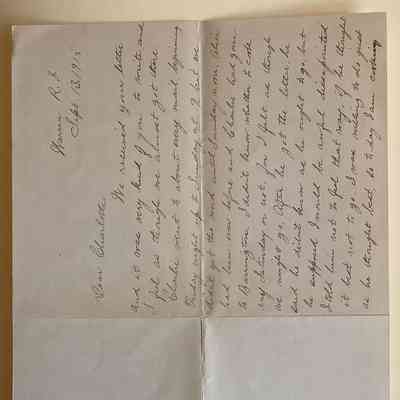 Warren R. I.
Sept 13, 1915
Dear Charlotte
We received your letter
and it was very kind of you to write and
I feel as though we almost got there
Charlie went to about every mail beginning
Friday night up to Sunday at 9 but we
didn't get the word until Sunday noon
had been now before and Charlie had gone
to Barrington. I didn't know whether to cook
any Saturday or not, for I felt as though
we might go. After he got the letter he
said he didn't know as he ought to go but
he supposed I would be awful disappointed
I told him not to feel that way, if he thought
it best not to go I was willing to do just
as he thought best, so to day I am